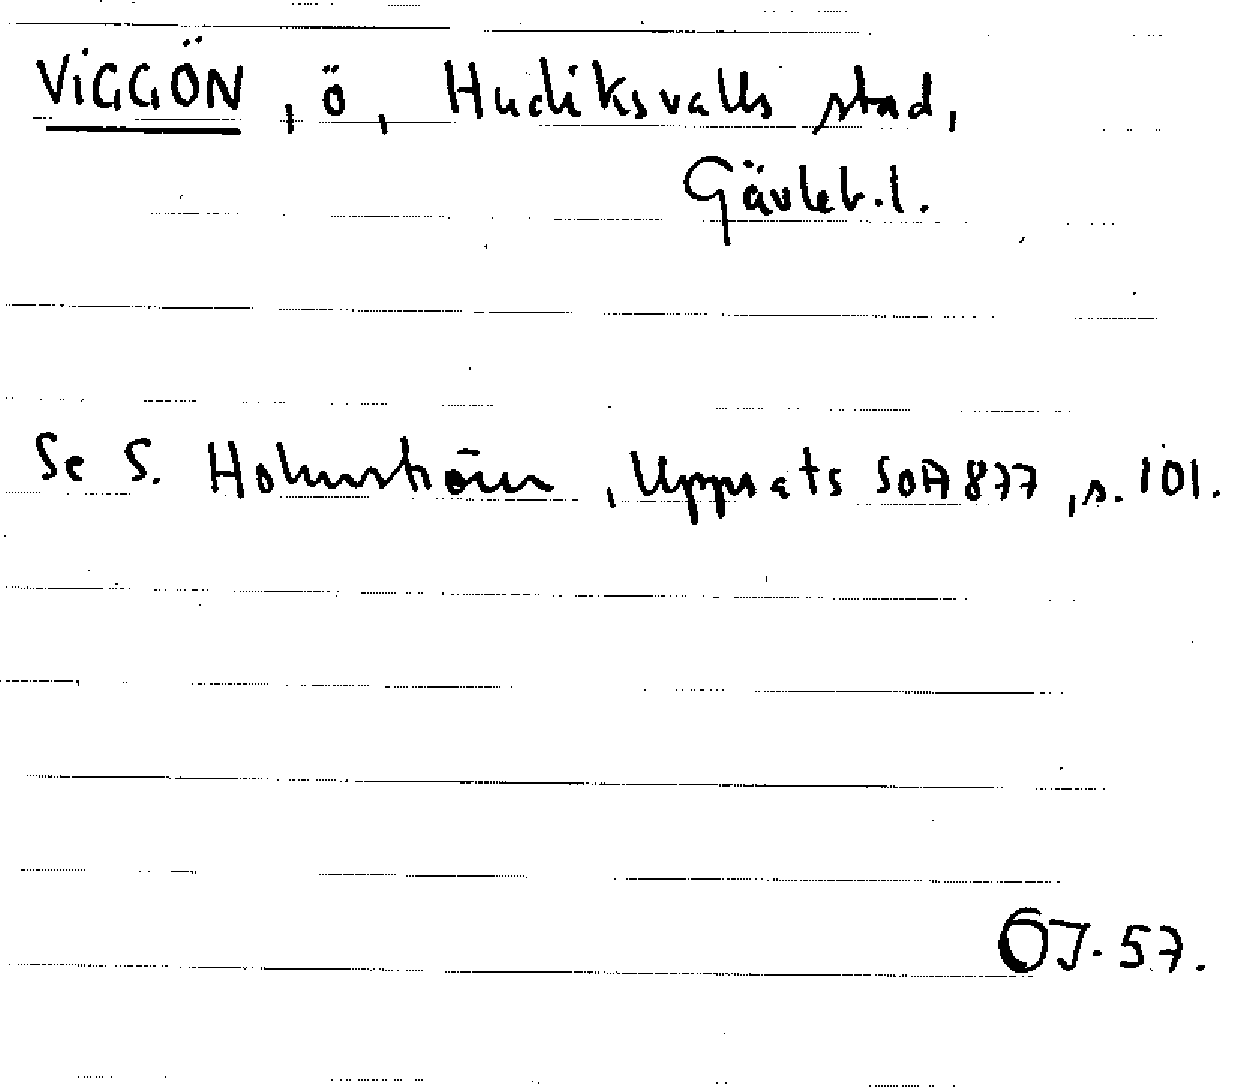 VIGGÖN, ö, Hudiksvalls stad,
Gävleb.l.
Se S. Holmström, Uppsats SOA 877, s. 101.
OJ. 57.